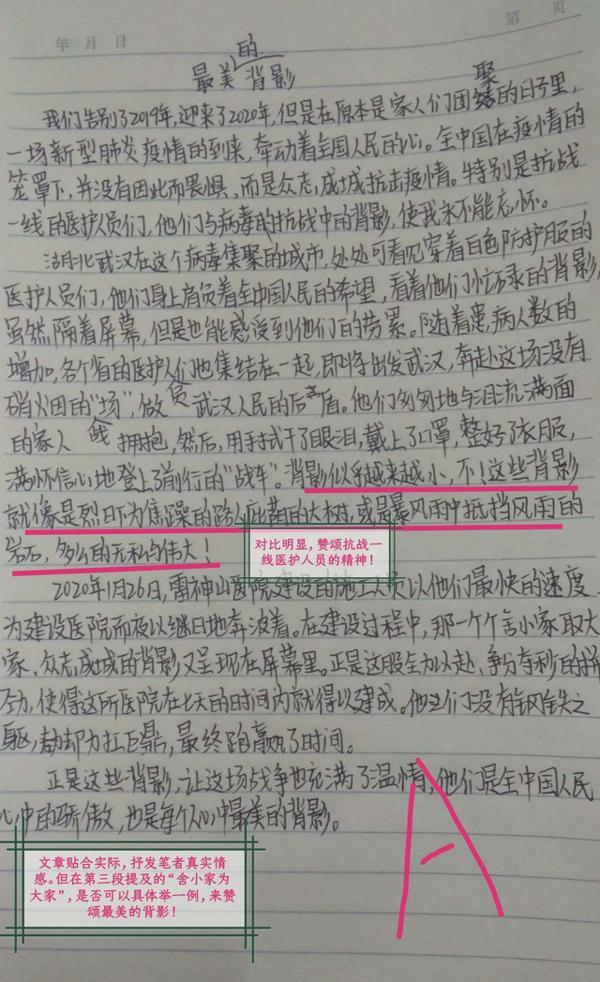 年 月 日
第 页
最美的背影
我们告别了2019年,迎来了2020年,但是在原本是家人们团聚的日子里,
一场新型肺炎疫情的到来,牵动着全国人民的心。全中国在疫情的
笼罩下,并没有因此而畏惧,而是众志成城抗击疫情。特别是抗战
一线的医护人员们,他们与病毒的抗战中的背影,使我永不能忘怀。
湖北武汉在这个病毒集聚的城市,处处可看见穿着白色防护服的
医护人员们,他们身上肩负着全中国人民的希望,看着他们忙碌的背影,
虽然隔着屏幕,但是也能感受到他们的劳累。随着患病人数的
增加,各个省的医护人员们也集结在一起,即将出发武汉,奔赴这场没有
硝烟的“战场”,做武汉人民的后盾。他们匆匆地与泪流满面
的家人拥抱,然后,用手拭干了眼泪,戴上了口罩,整好了衣服,
满怀信心地登上了前行的“战车”。背影似乎越来越小,不!这些背影
就像是烈日下为焦躁的路人庇荫的大树,或是暴风雨中抵挡风雨的
岩石,多么的无私与伟大!
对比明显,赞颂抗战一
线医护人员的精神!
2020年1月26日,雷神山医院建设的施工人员以他们最快的速度
为建设医院而夜以继日地奔波着。在建设过程中,那一个个舍小家取大
家、众志成城的背影又呈现在屏幕里。正是这股全力以赴、争分夺秒的拼
劲,使得这所医院在七天的时间内就得以建成。他们没有钢铁之
躯,却力扛巨鼎,最终跑赢了时间。
正是这些背影,让这场战争也充满了温情,他们是全中国人民
心中的骄傲,也是每个人心中最美的背影。
文章贴合实际,抒发笔者真实情
感。但在第三段提及的“舍小家为
大家”,是否可以具体举一例,来赞
颂最美的背影!
A-